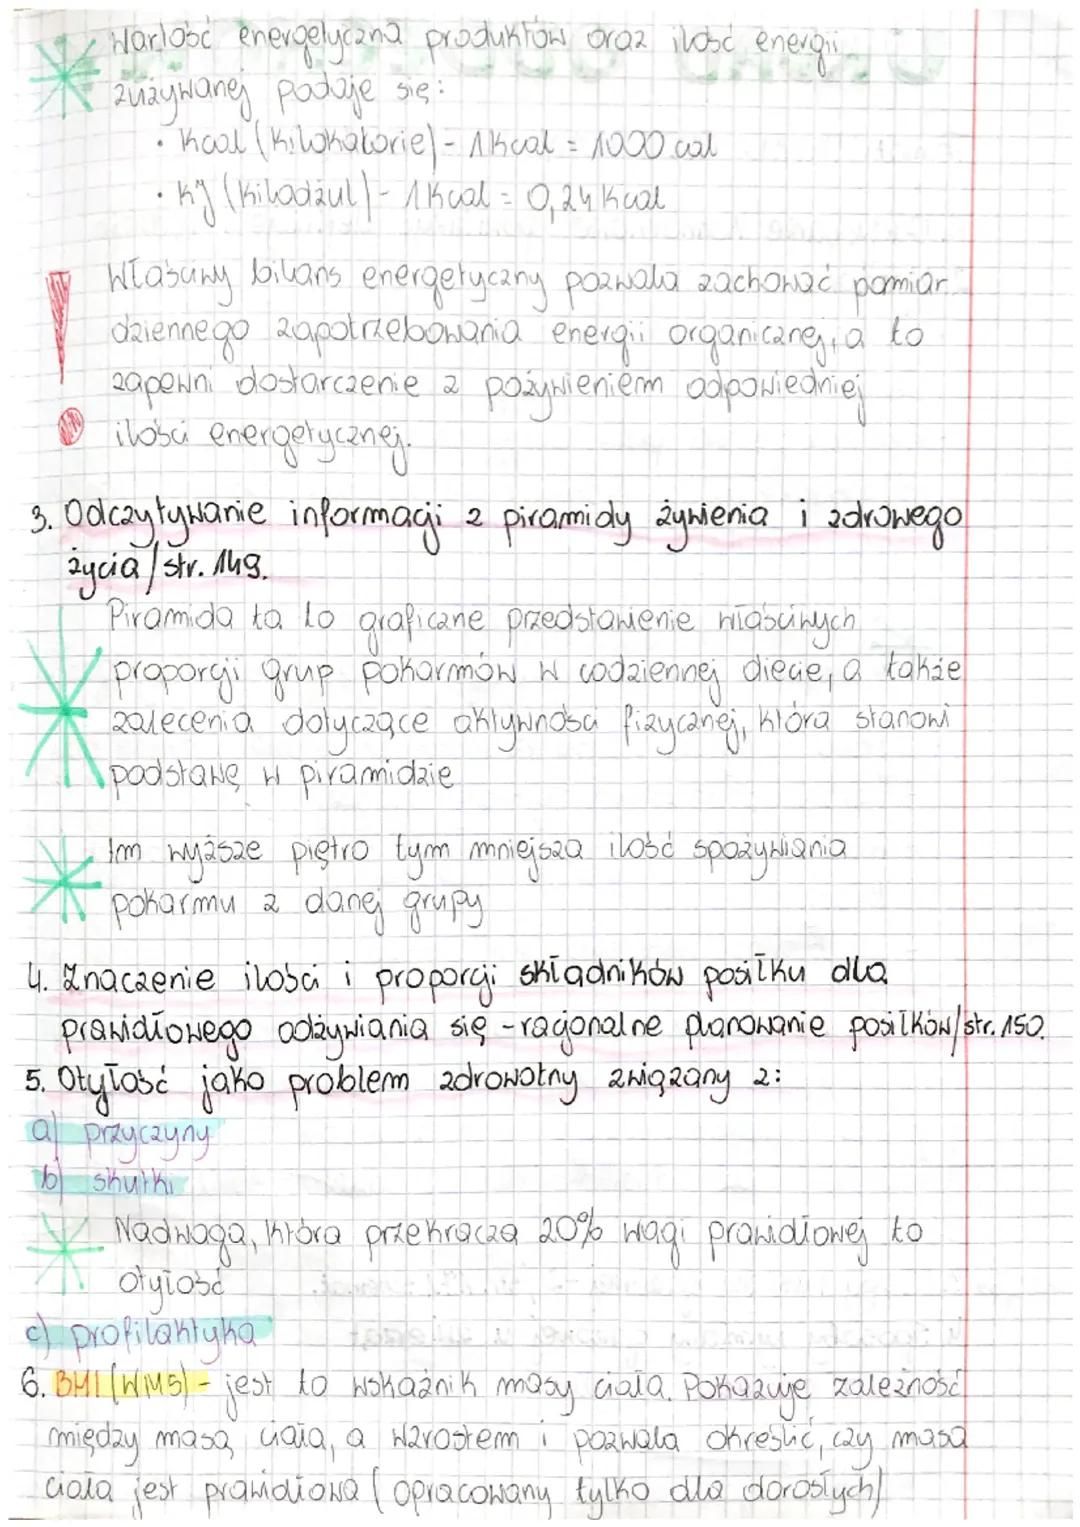 Wartość energetyczna produktów oraz ilość energii
zużywanej podaje się:
• Kcal (Kilokalorie) - 1Kcal = 1000 cal
• Kj (Kilodżul) - 1Kcal = 0,24 Kcal
Właściwy bilans energetyczny pozwala zachować pomiar
dziennego zapotrzebowania energii organicznej, a to
zapewni dostarczenie z pożywieniem odpowiedniej
ilości energetycznej.
3. Odczytywanie informacji z piramidy żywienia i zdrowego
życia/str. 149.
Piramida ta to graficzne przedstawienie właściwych
proporcji grup pokarmów w codziennej diecie, a także
zalecenia dotyczące aktywności fizycznej, która stanowi
podstawę w piramidzie
Im wyższe piętro tym mniejsza ilość spożywiania
pokarmu z danej grupy
4. Znaczenie ilości i proporcji składników posiłku dla
prawidłowego odżywiania się - racjonalne planowanie posiłków/str. 150.
5. Otyłość jako problem zdrowotny związany z:
a) przyczyny
b) skutki
Nadwaga, która przekracza 20% wagi prawidłowej to
otyłość
c) profilaktyka
6. BMI (WMS) - jest to wskaźnik masy ciała. Pokazuje zależność
między masą ciała, a wzrostem i pozwala określić, czy masa
ciała jest prawidłowa (opracowany tylko dla dorosłych)